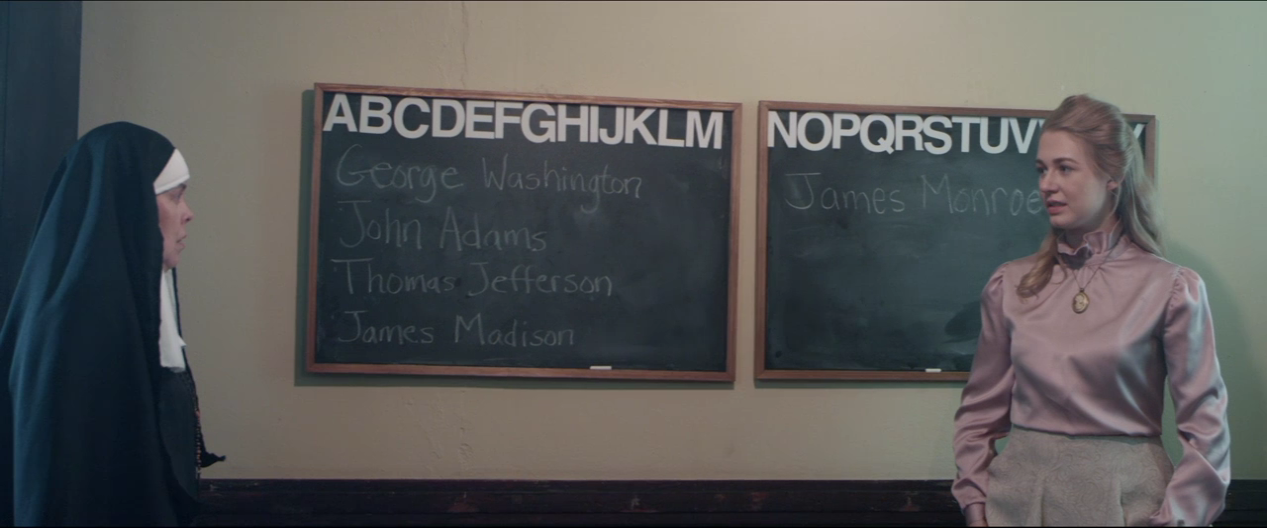 ABCDEFGHIJKLM
George Washington
John Adams
Thomas Jefferson
James Madison
NOPQRSTUV
James Monroe